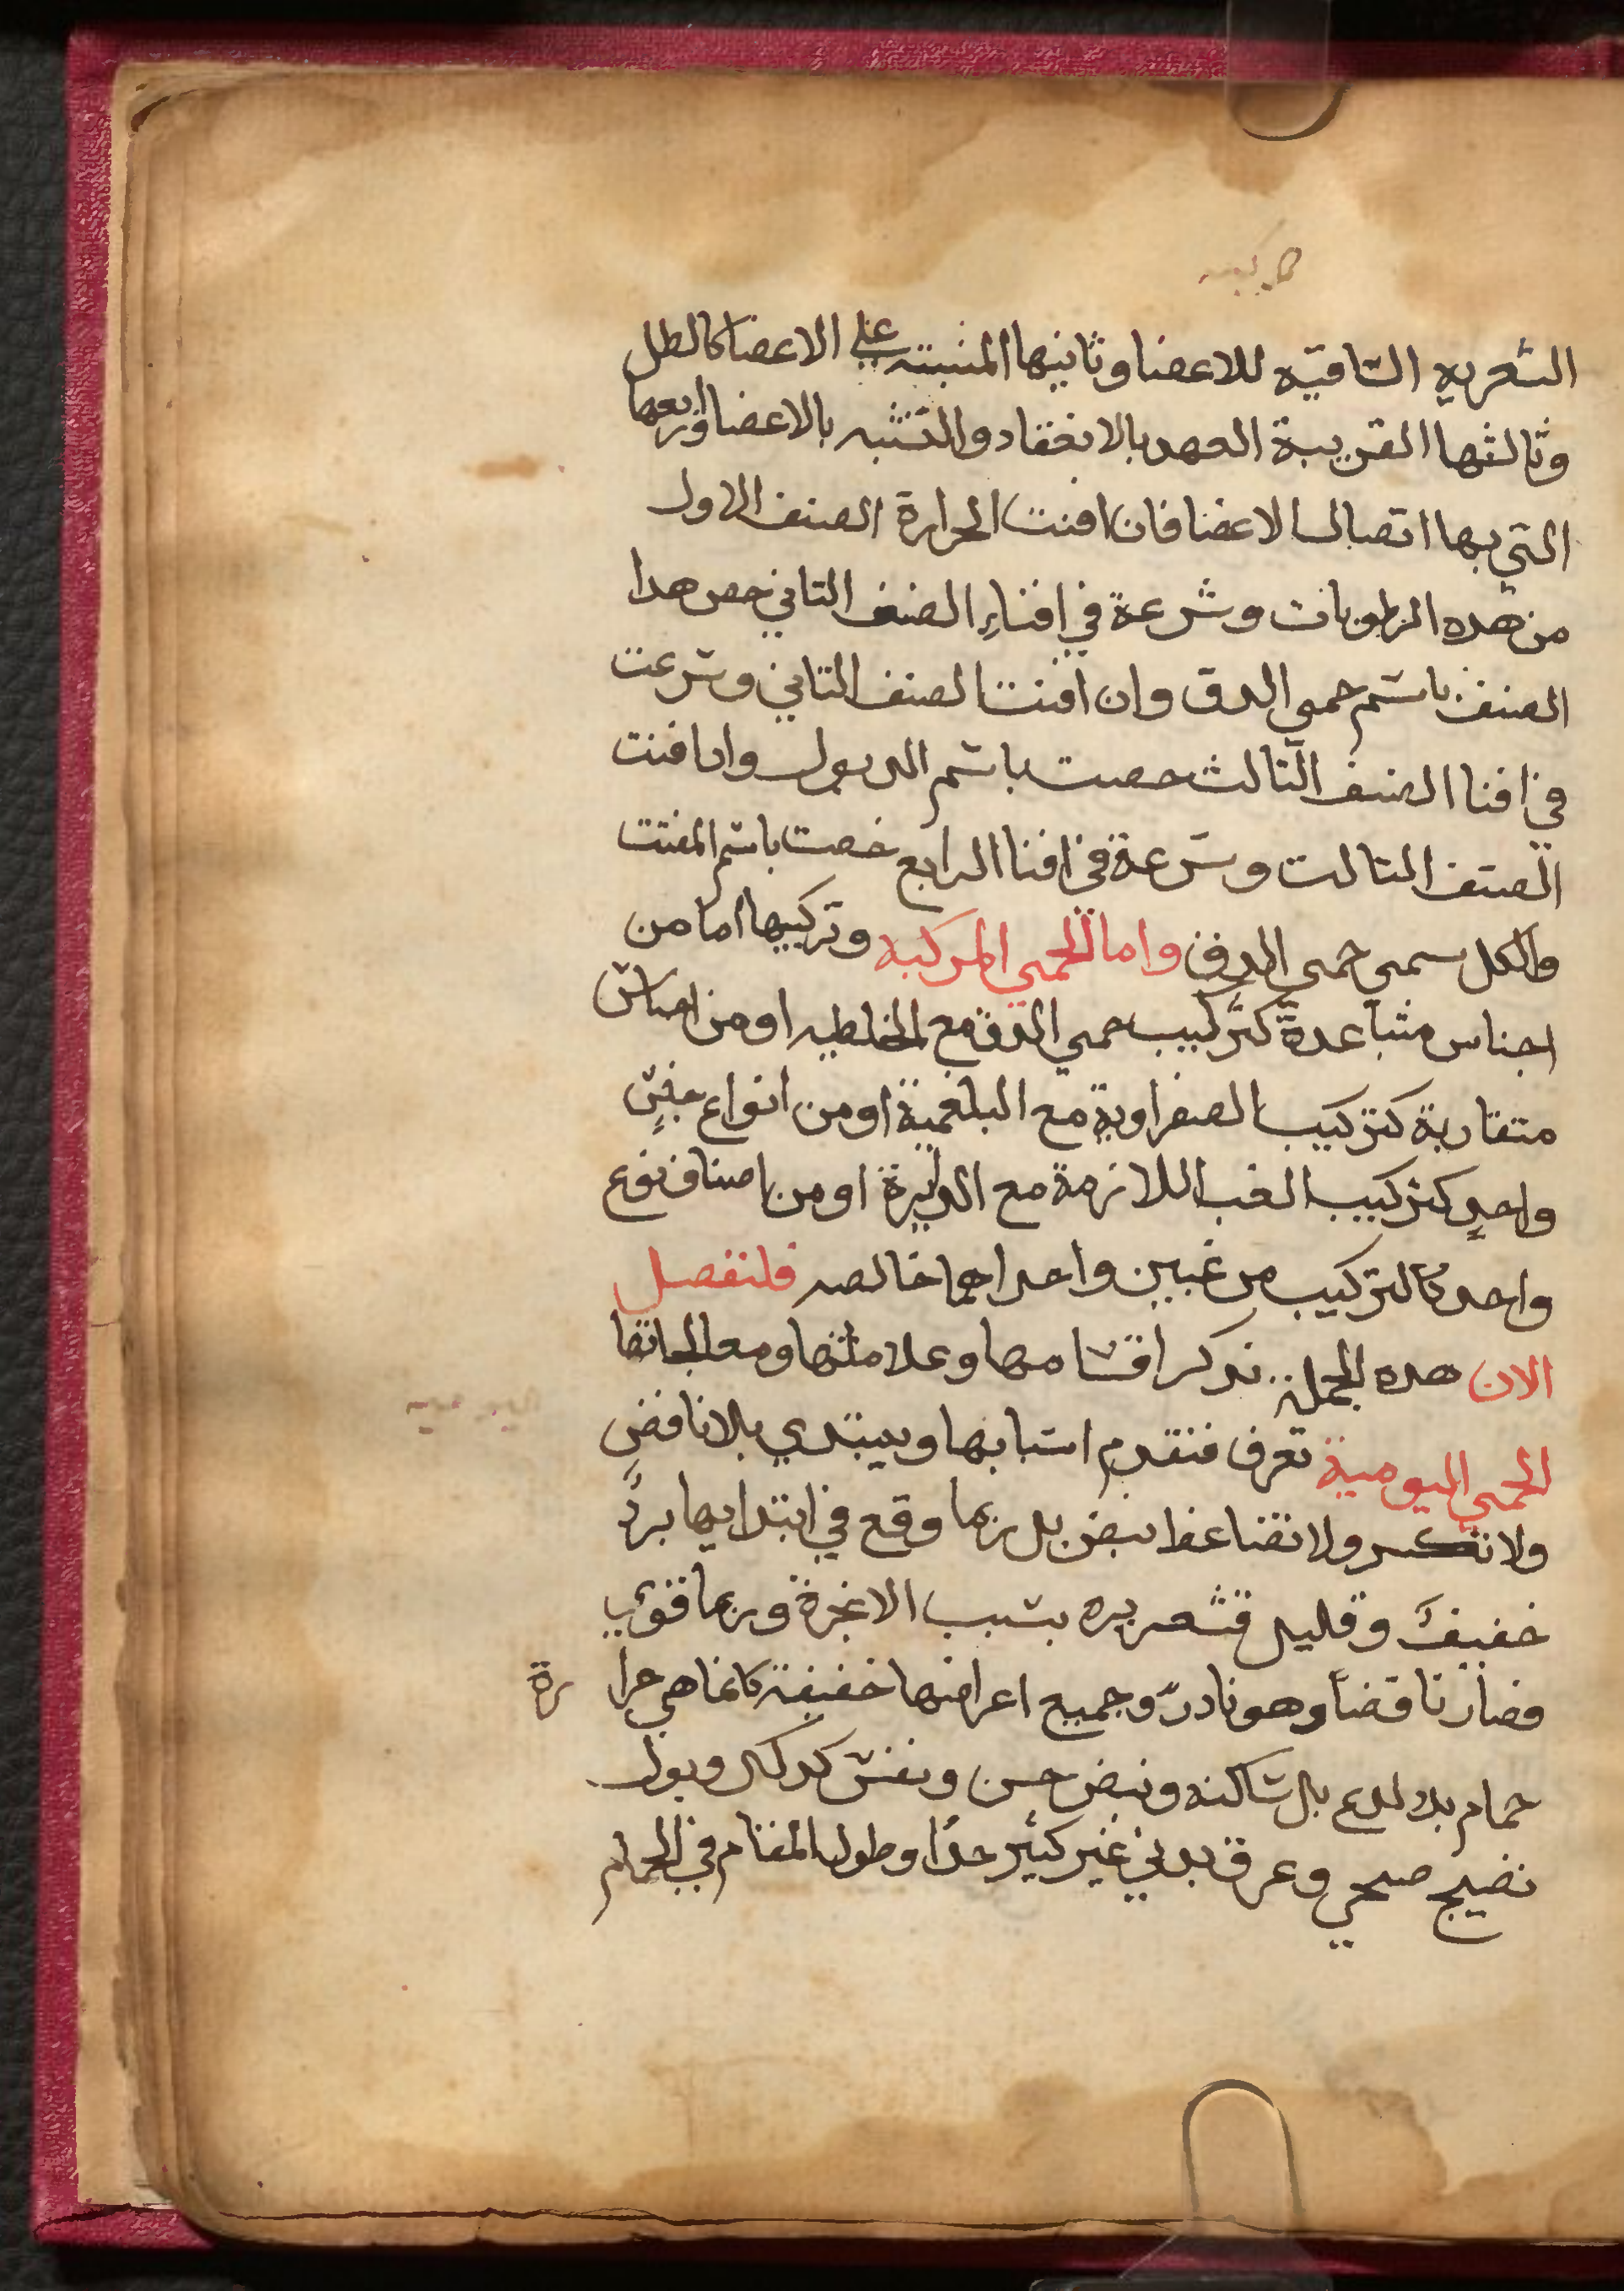 الشعريه الساقيه للاعضا وثانيها المنبتة على الاعضا كالطل
وثالثها القريبة العهد بالانعقاد والتشبه بالاعضا ورابعها
التي بها اتصال الاعضا فان افنت الحرارة الصنف الاول
من هده الرطوبات وشرعة في افناءِ الصنف التاني خص هدا
الصنف باسم حمي الدق وان افنت الصنف التاني وشرعت
في افنا الصنف التالث خصت باسم الدبول وان افنت
الصنف التالت وشرعة في افنا الرابع خصت باسم المفتت
والكل سمي حمي الدق واما الحمي المركبه وتركيبها اما من
اجناس متباعدة كتركيب حمي الدق مع الخلطيه او من اجناس
متقاربة كتركيب الصفراوية مع البلغمية او من انواع جنسٍ
واحدٍ كتركيب الغب اللازمة مع الدايرة او من اصناف نوع
واحد كالتركيب من غبين واحداهما خالصه فلنفصل
الان هده الجملة ندكر اقسامها وعلاماتها ومعالجاتها
الحمي اليومية تعرف فتقدم اسبابها ويبتدي بلا نافض
ولا تكسر ولا تضاغط نبض بل ربما وقع في ابتدايها بردً
خفيفً وقليل قشعريره بسبب الابخرة وربما قوي
فصار نافضاً وهو نادرّ وجميع اعراضها خفيفة كانما هي حرا رة
حمام بلا لدع بل ساكنه ونبض حسن ونفس كدلك وبول
نضيج صحي وعرق بدني غير كثير جدًا وطول المقام في الحمام